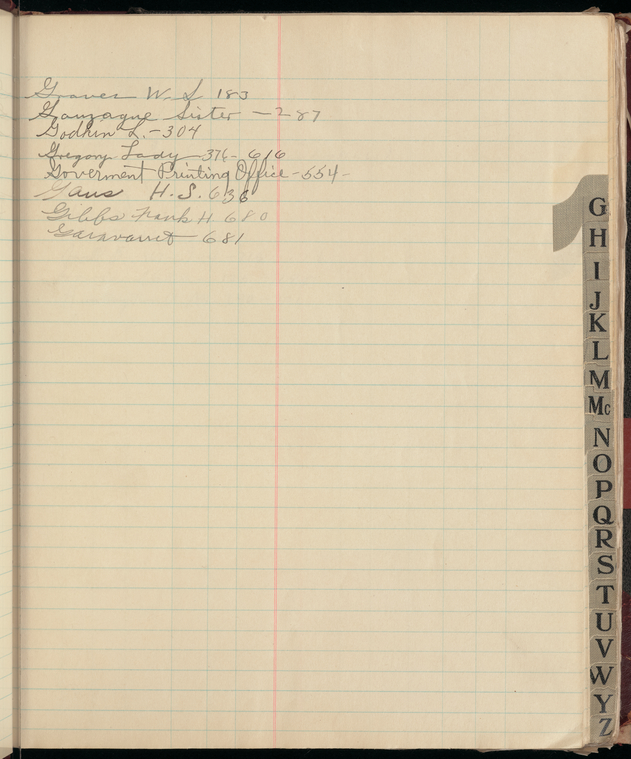 Graves W. S 183
Gonzague Sister - 287
Godkin L. - 304
Gregory Lady - 376 - 616
Goverment Printing Office - 554 -
Gans H. S. 636
Gibbs Frank H 680
681
G
H
I
J
K
L
M
Mc
N
O
P
Q
R
S
T
U
V
W
Y
Z